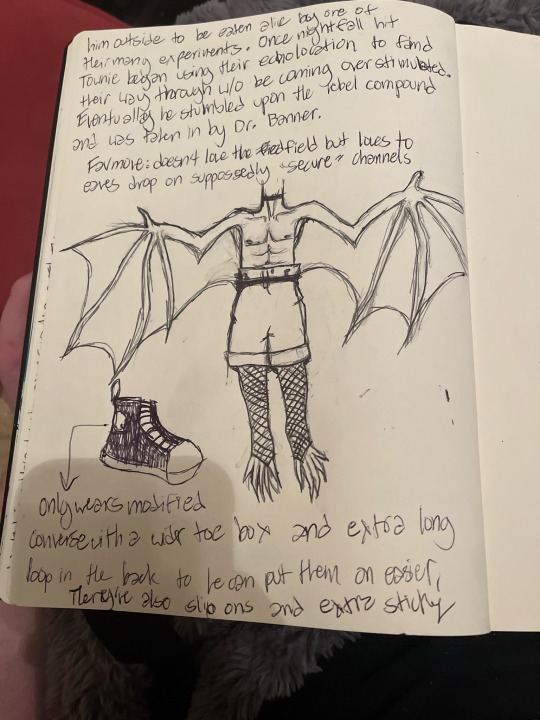 him outside to be eaten alive by one of
their many experiments. Once nightfall hit
Tounie began using their echolocation to find
their way through w/o be coming overstimulated.
Eventually he stumbled upon the rebel compound
and was taken in by Dr. Banner.
Favmove: doesn't love the field but loves to
eaves drop on suppossedly "secure" channels
only wears modified
converse with a wider toe box and extra long
loop in the back to he can put them on easier,
They're also slip ons and extra sticky